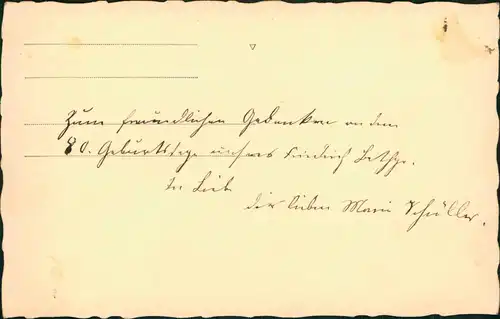 Zum freundlichen Gedenken an dem
80. Geburtstage unseres Friedrich
In Liebe
der lieben Marie Schüller.